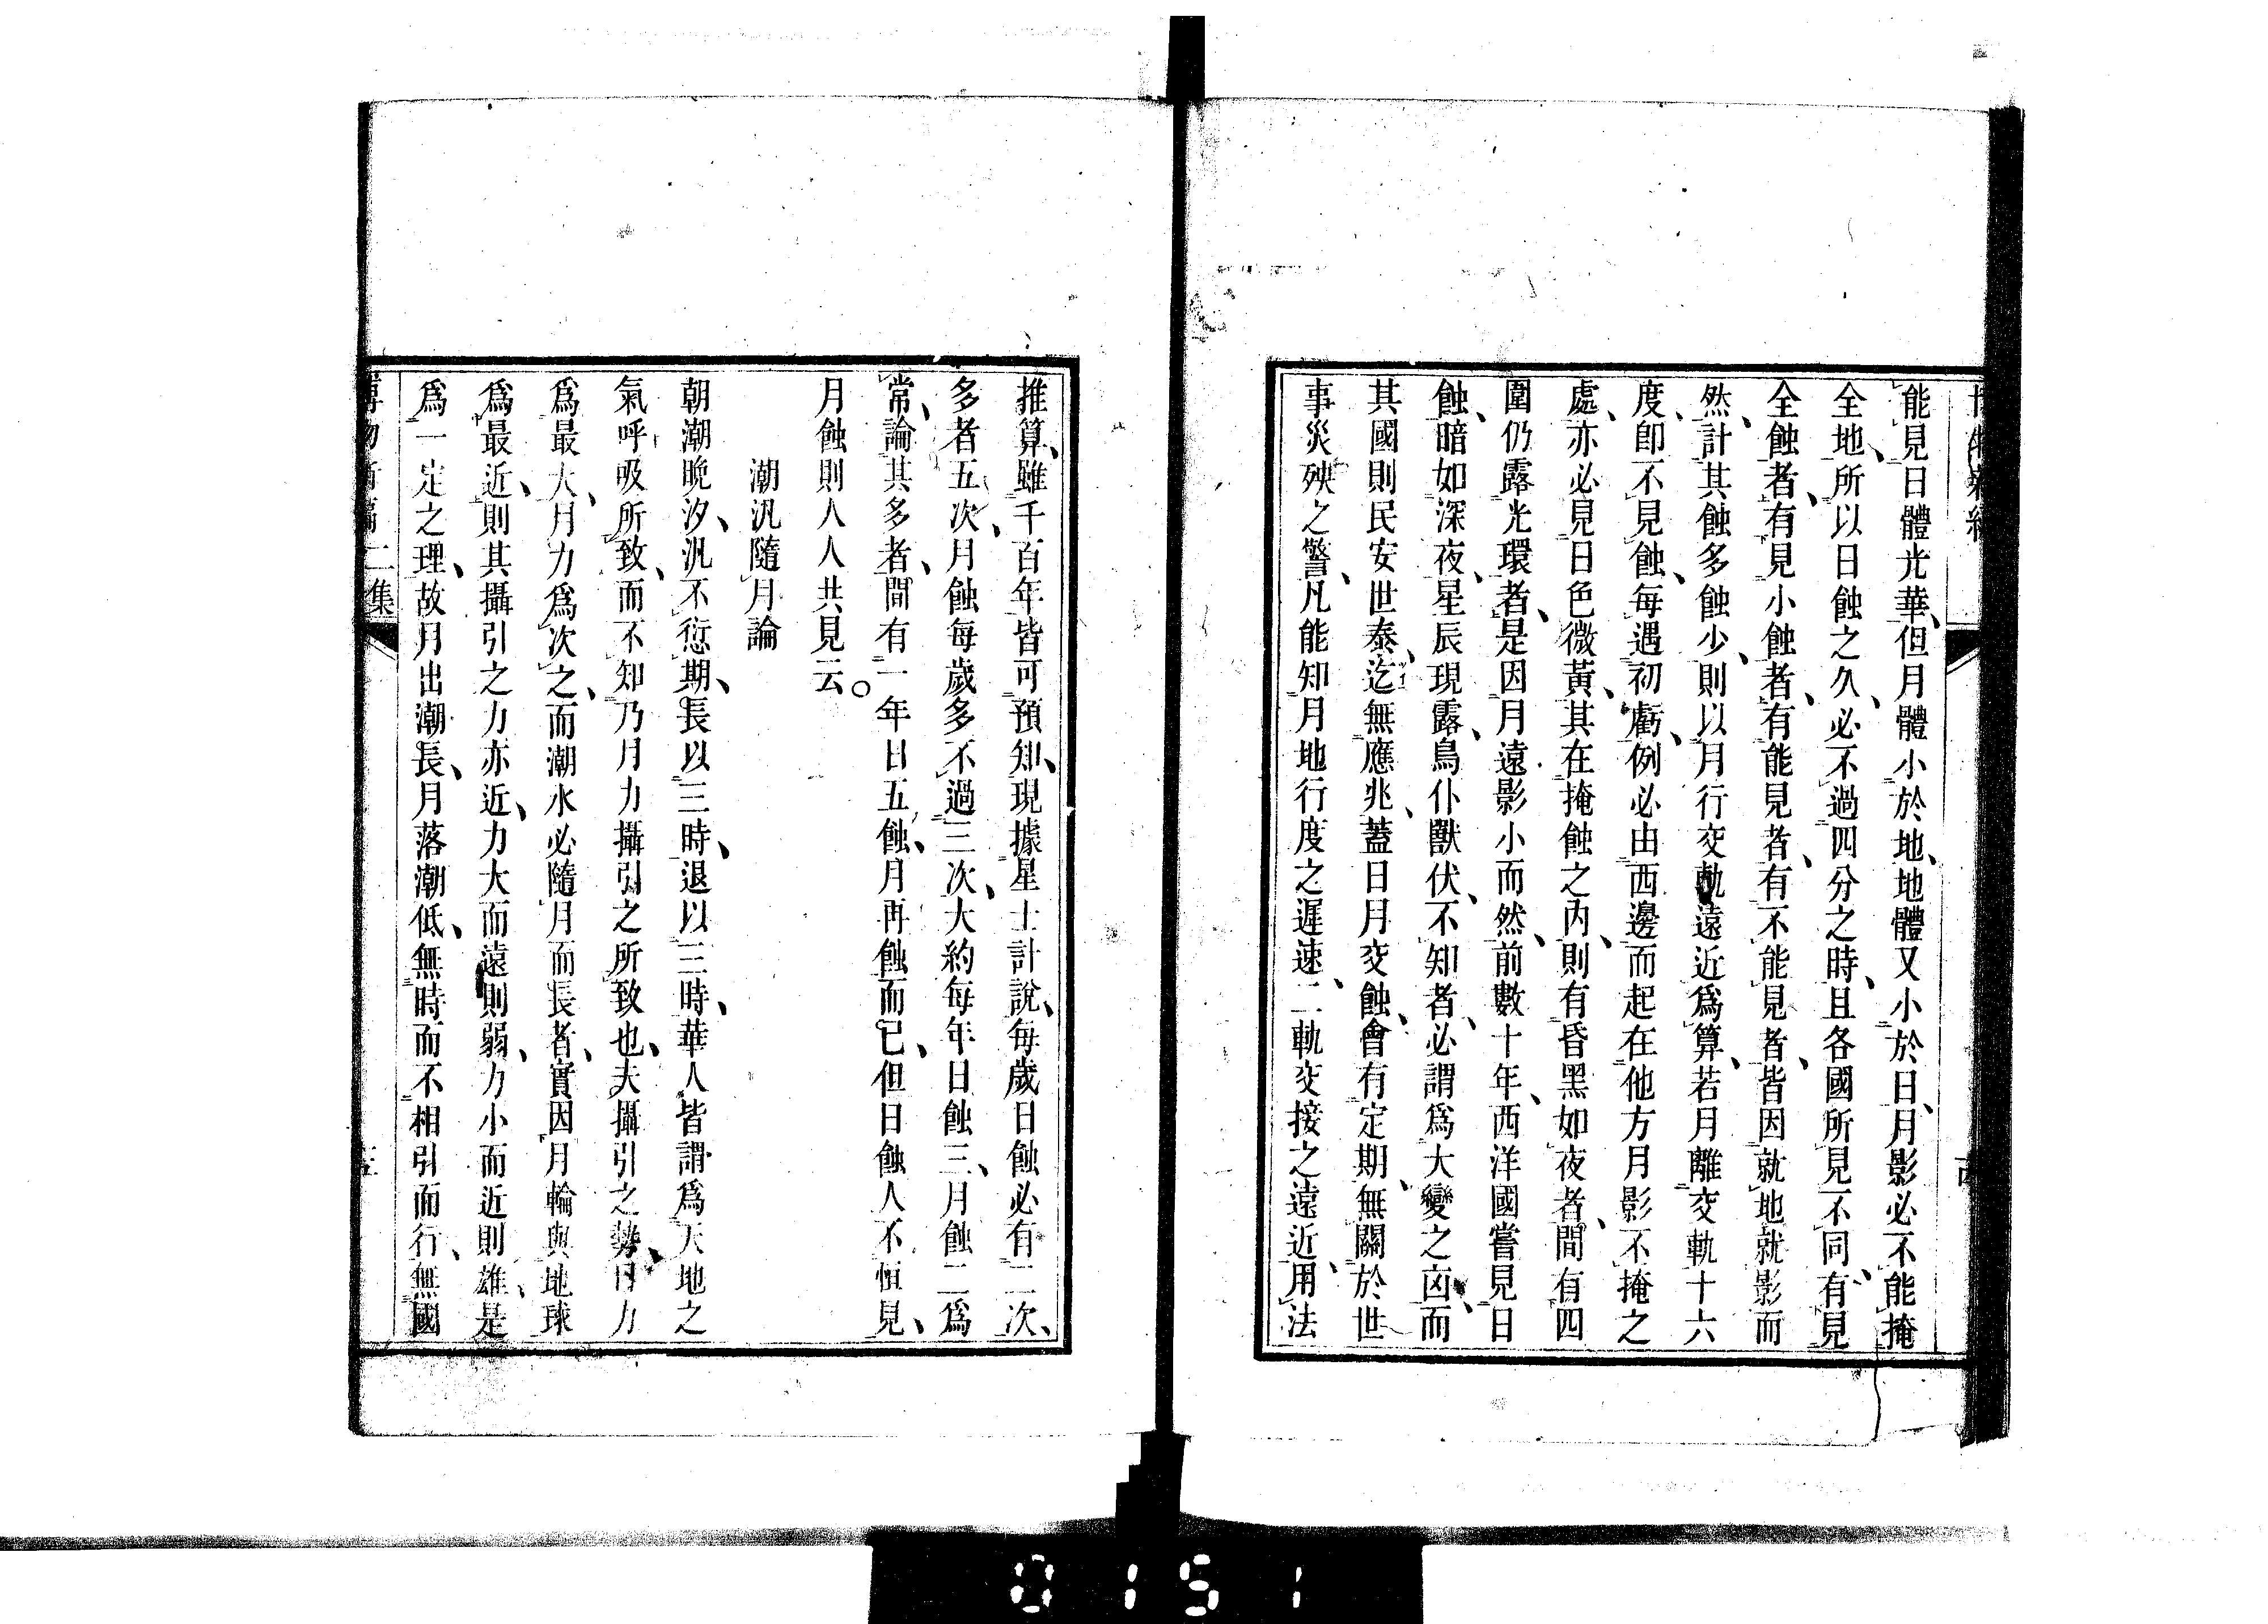 博物新編
能見日體光華、但月體小於地、地體又小於日、月影必不能掩
全地、所以日蝕之久、必不過四分之時、且各國所見不同、有見
全蝕者、有見小蝕者、有能見者、有不能見者、皆因就地就影而
然、計其蝕多蝕少、則以月行交軌遠近爲算、若月離交軌十六
度、卽不見蝕、每遇初虧、例必由西邊而起在他方月影不掩之
處、亦必見日色微黃、其在掩蝕之內、則有昏黑如夜者、間有四
圍仍露光環者、是因月遠影小而然、前數十年、西洋國嘗見日
蝕、暗如深夜、星辰現露、鳥仆獸伏、不知者、必謂爲大變之凶、而
其國則民安世泰、迄無應兆、蓋日月交蝕、會有定期、無關於世
事災殃之警、凡能知月地行度之遲速、二軌交接之遠近、用法
推算、雖千百年皆可預知、現據星士計說、每歲日蝕必有二次、
多者五次、月蝕每歲多不過三次、大約每年日蝕三、月蝕二爲
常、論其多者、間有一年日五蝕、月再蝕而已、但日蝕人不恒見、
月蝕則人人共見云。
潮汛隨月論
朝潮晚汐、汛不愆期、長以三時、退以三時、華人皆謂爲天地之
氣呼吸所致、而不知乃月力攝引之所致也、夫攝引之勢、日力
爲最大、月力爲次之、而潮水必隨月而長者、實因月輪與地球
爲最近、則其攝引之力亦近、力大而遠則弱、力小而近則雄、是
爲一定之理、故月出潮長、月落潮低、無時而不相引而行、無國
博物新編二集